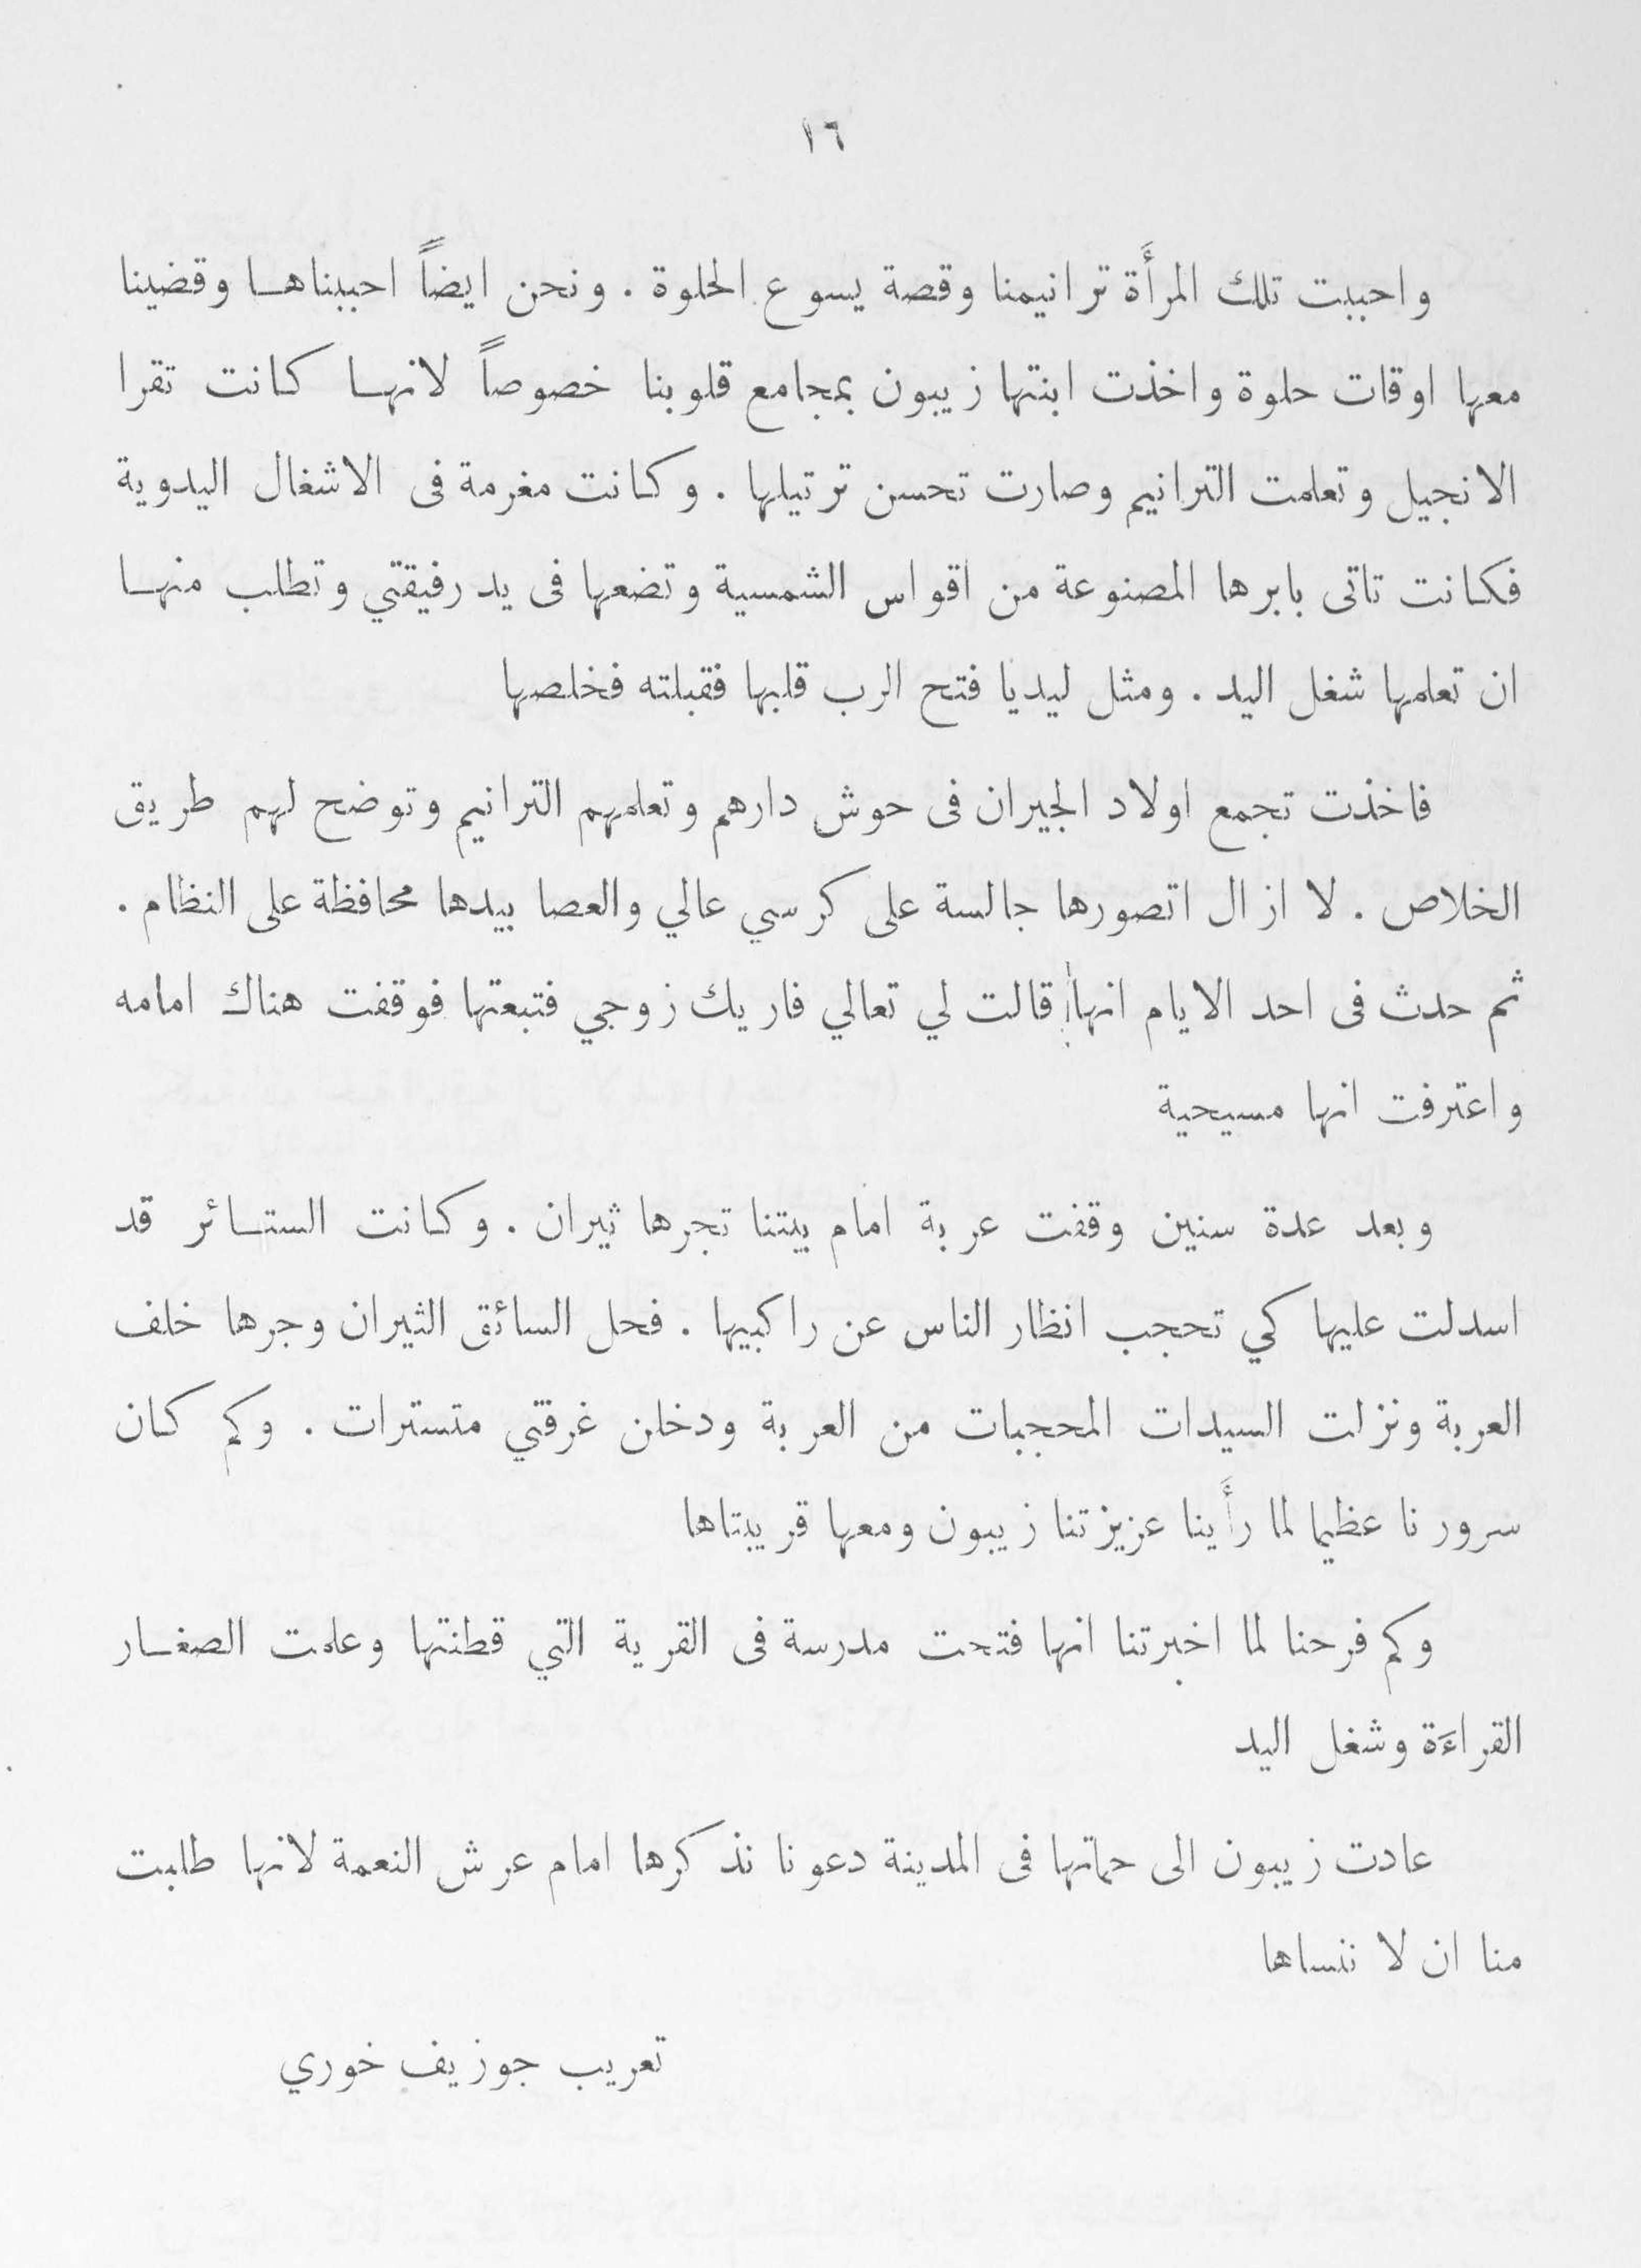 ١٦
واحببت تلك المرأَة ترانيمنا وقصة يسوع الحلوة . ونحن ايضاً احببناها وقضينا
معها اوقات حلوة واخذت ابنتها زيبون بمجامع قلوبنا خصوصاً لانها كانت تقرا
الانجيل وتعلمت الترانيم وصارت تحسن ترتيلها . وكانت مغرمة فى الاشغال اليدوية
فكانت تاتى بابرها المصنوعة من اقواس الشمسية وتضعها فى يد رفيقتي وتطلب منها
ان تعلمها شغل اليد . ومثل ليديا فتح الرب قلبها فقبلته فخلصها
فاخذت تجمع اولاد الجيران فى حوش دارهم وتعلمهم الترانيم وتوضح لهم طريق
الخلاص . لا ازال اتصورها جالسة على كرسي عالي والعصا بيدها محافظة على النظام .
ثم حدث فى احد الايام انها قالت لي تعالي فاريك زوجي فتبعتها فوقفت هناك امامه
واعترفت انها مسيحية
وبعد عدة سنين وقفت عربة امام بيتنا تجرها ثيران . وكانت الستائر قد
اسدلت عليها كي تحجب انظار الناس عن راكبيها . فحل السائق الثيران وجرها خلف
العربة ونزلت السيدات المحجبات من العربة ودخلن غرفتي متسترات . وكم كان
سرورنا عظيما لما رأَينا عزيزتنا زيبون ومعها قريبتاها
وكم فرحنا لما اخبرتنا انها فتحت مدرسة فى القرية التي قطنتها وعلمت الصغار
القراءَة وشغل اليد
عادت زيبون الى حماتها فى المدينة دعونا نذكرها امام عرش النعمة لانها طلبت
منا ان لا ننساها
تعريب جوزيف خوري